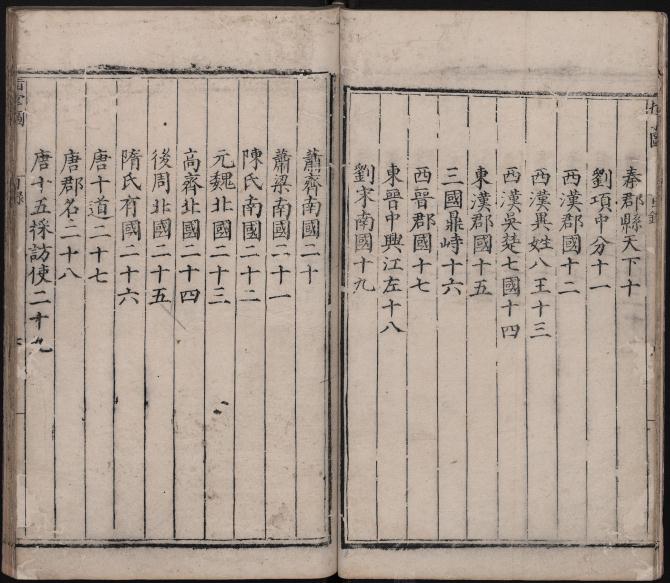 秦郡縣天下十
劉項中分十一
西漢郡國十二
西漢異姓八王十三
西漢吳楚七國十四
東漢郡國十五
三國鼎峙十六
西晉郡國十七
東晉中興江左十八
劉宋南國十九
蕭齊南國二十
蕭梁南國二十一
陳氏南國二十二
元魏北國二十三
高齊北國二十四
後周北國二十五
隋氏有國二十六
唐十道二十七
唐郡名二十八
唐十五採訪使二十九